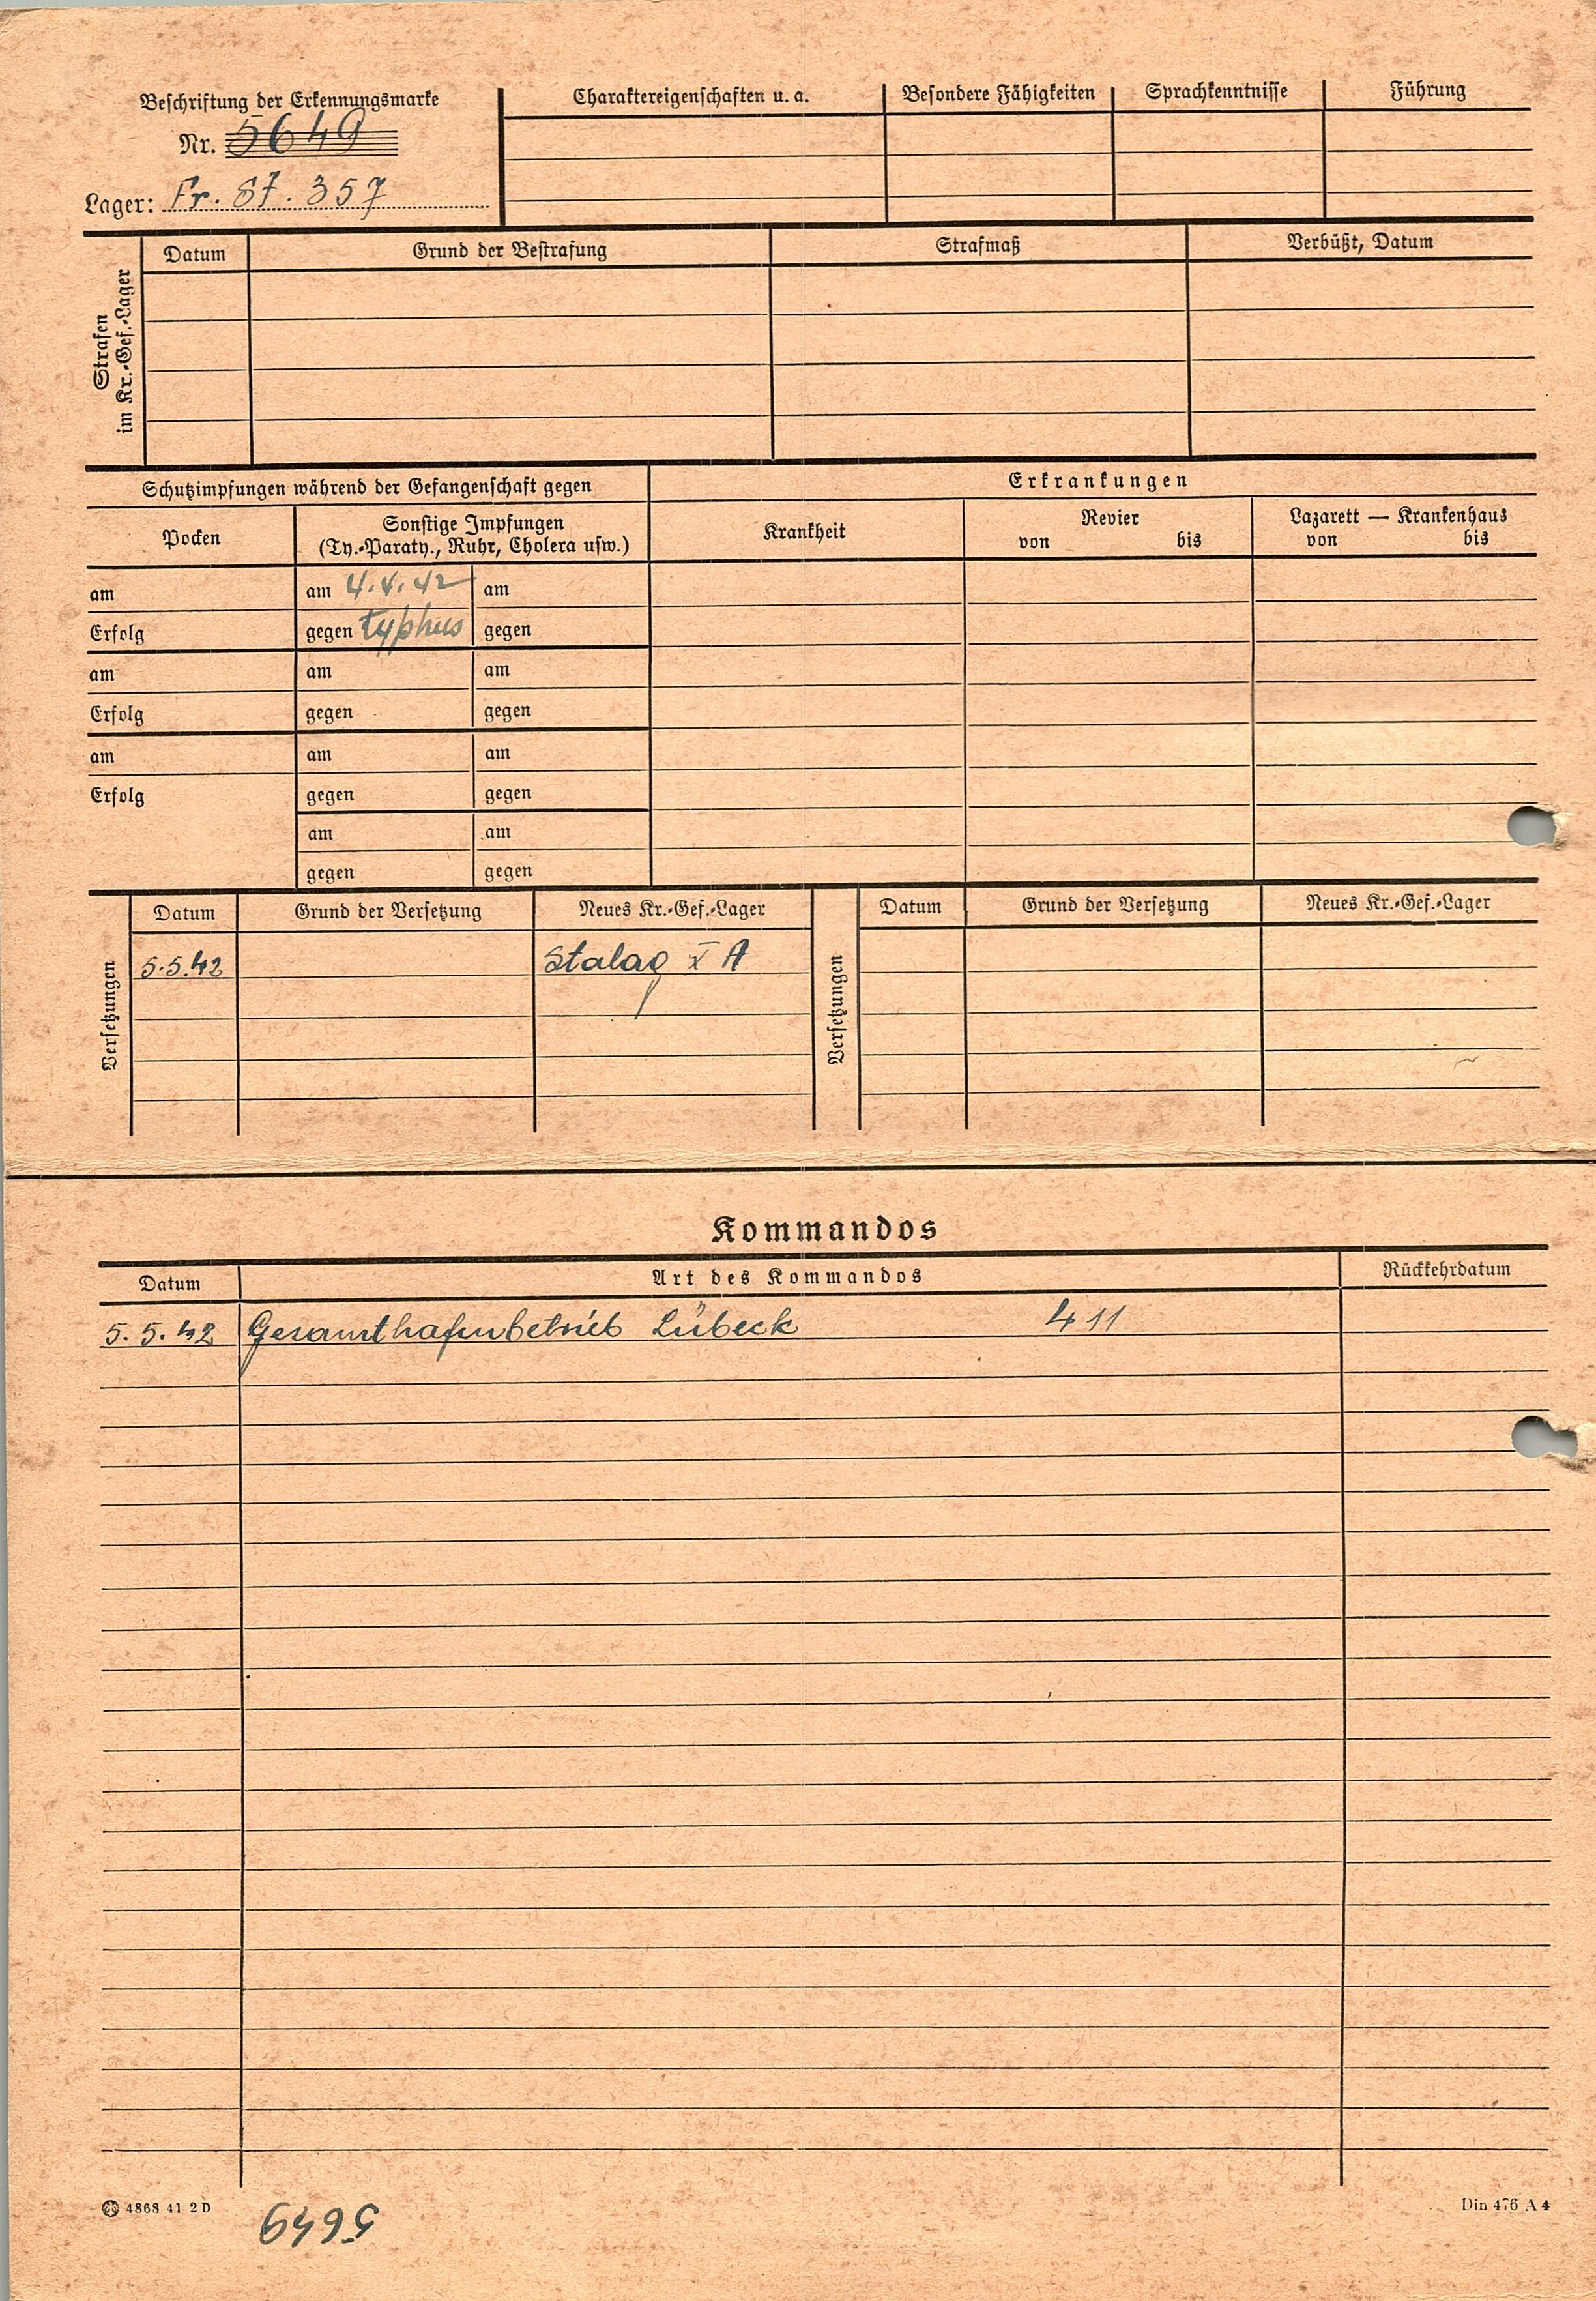 Beschriftung der Erkennungsmarke
Nr. 5649
Lager: Fr. St. 357
Charaktereigenschaften u. a.
Besondere Fähigkeiten
Sprachkenntnisse
Führung
Strafen
im Kr.-Gef.-Lager
Datum
Grund der Bestrafung
Strafmaß
Verbüßt, Datum
Schutzimpfungen während der Gefangenschaft gegen
Erkrankungen
Pocken
Sonstige Impfungen
(Ty.-Paraty., Ruhr, Cholera usw.)
Krankheit
Revier
von bis
Lazarett — Krankenhaus
von bis
am am 4.4.42 am
Erfolg gegen typhus gegen
am am am
Erfolg gegen gegen
am am am
Erfolg gegen gegen
am am
gegen gegen
Versetzungen
Datum Grund der Versetzung Neues Kr.-Gef.-Lager
5.5.42 Stalag X A
Versetzungen
Datum Grund der Versetzung Neues Kr.-Gef.-Lager
Kommandos
Datum Art des Kommandos Rückkehrdatum
5. 5. 42 Gesamthafenbetrieb Lübeck 411
4868 41 2 D
5649
Din 476 A 4